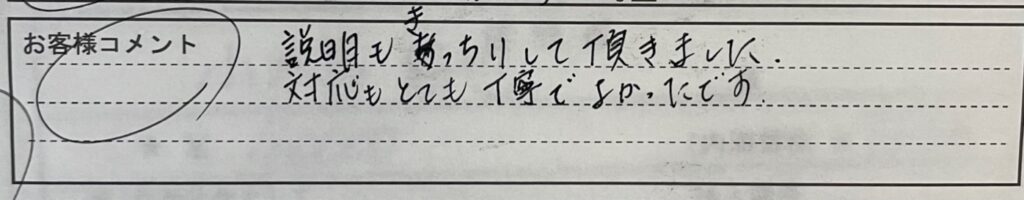 お客様コメント
説明もきっちりして頂きました.
対応もとても丁寧でよかったです.